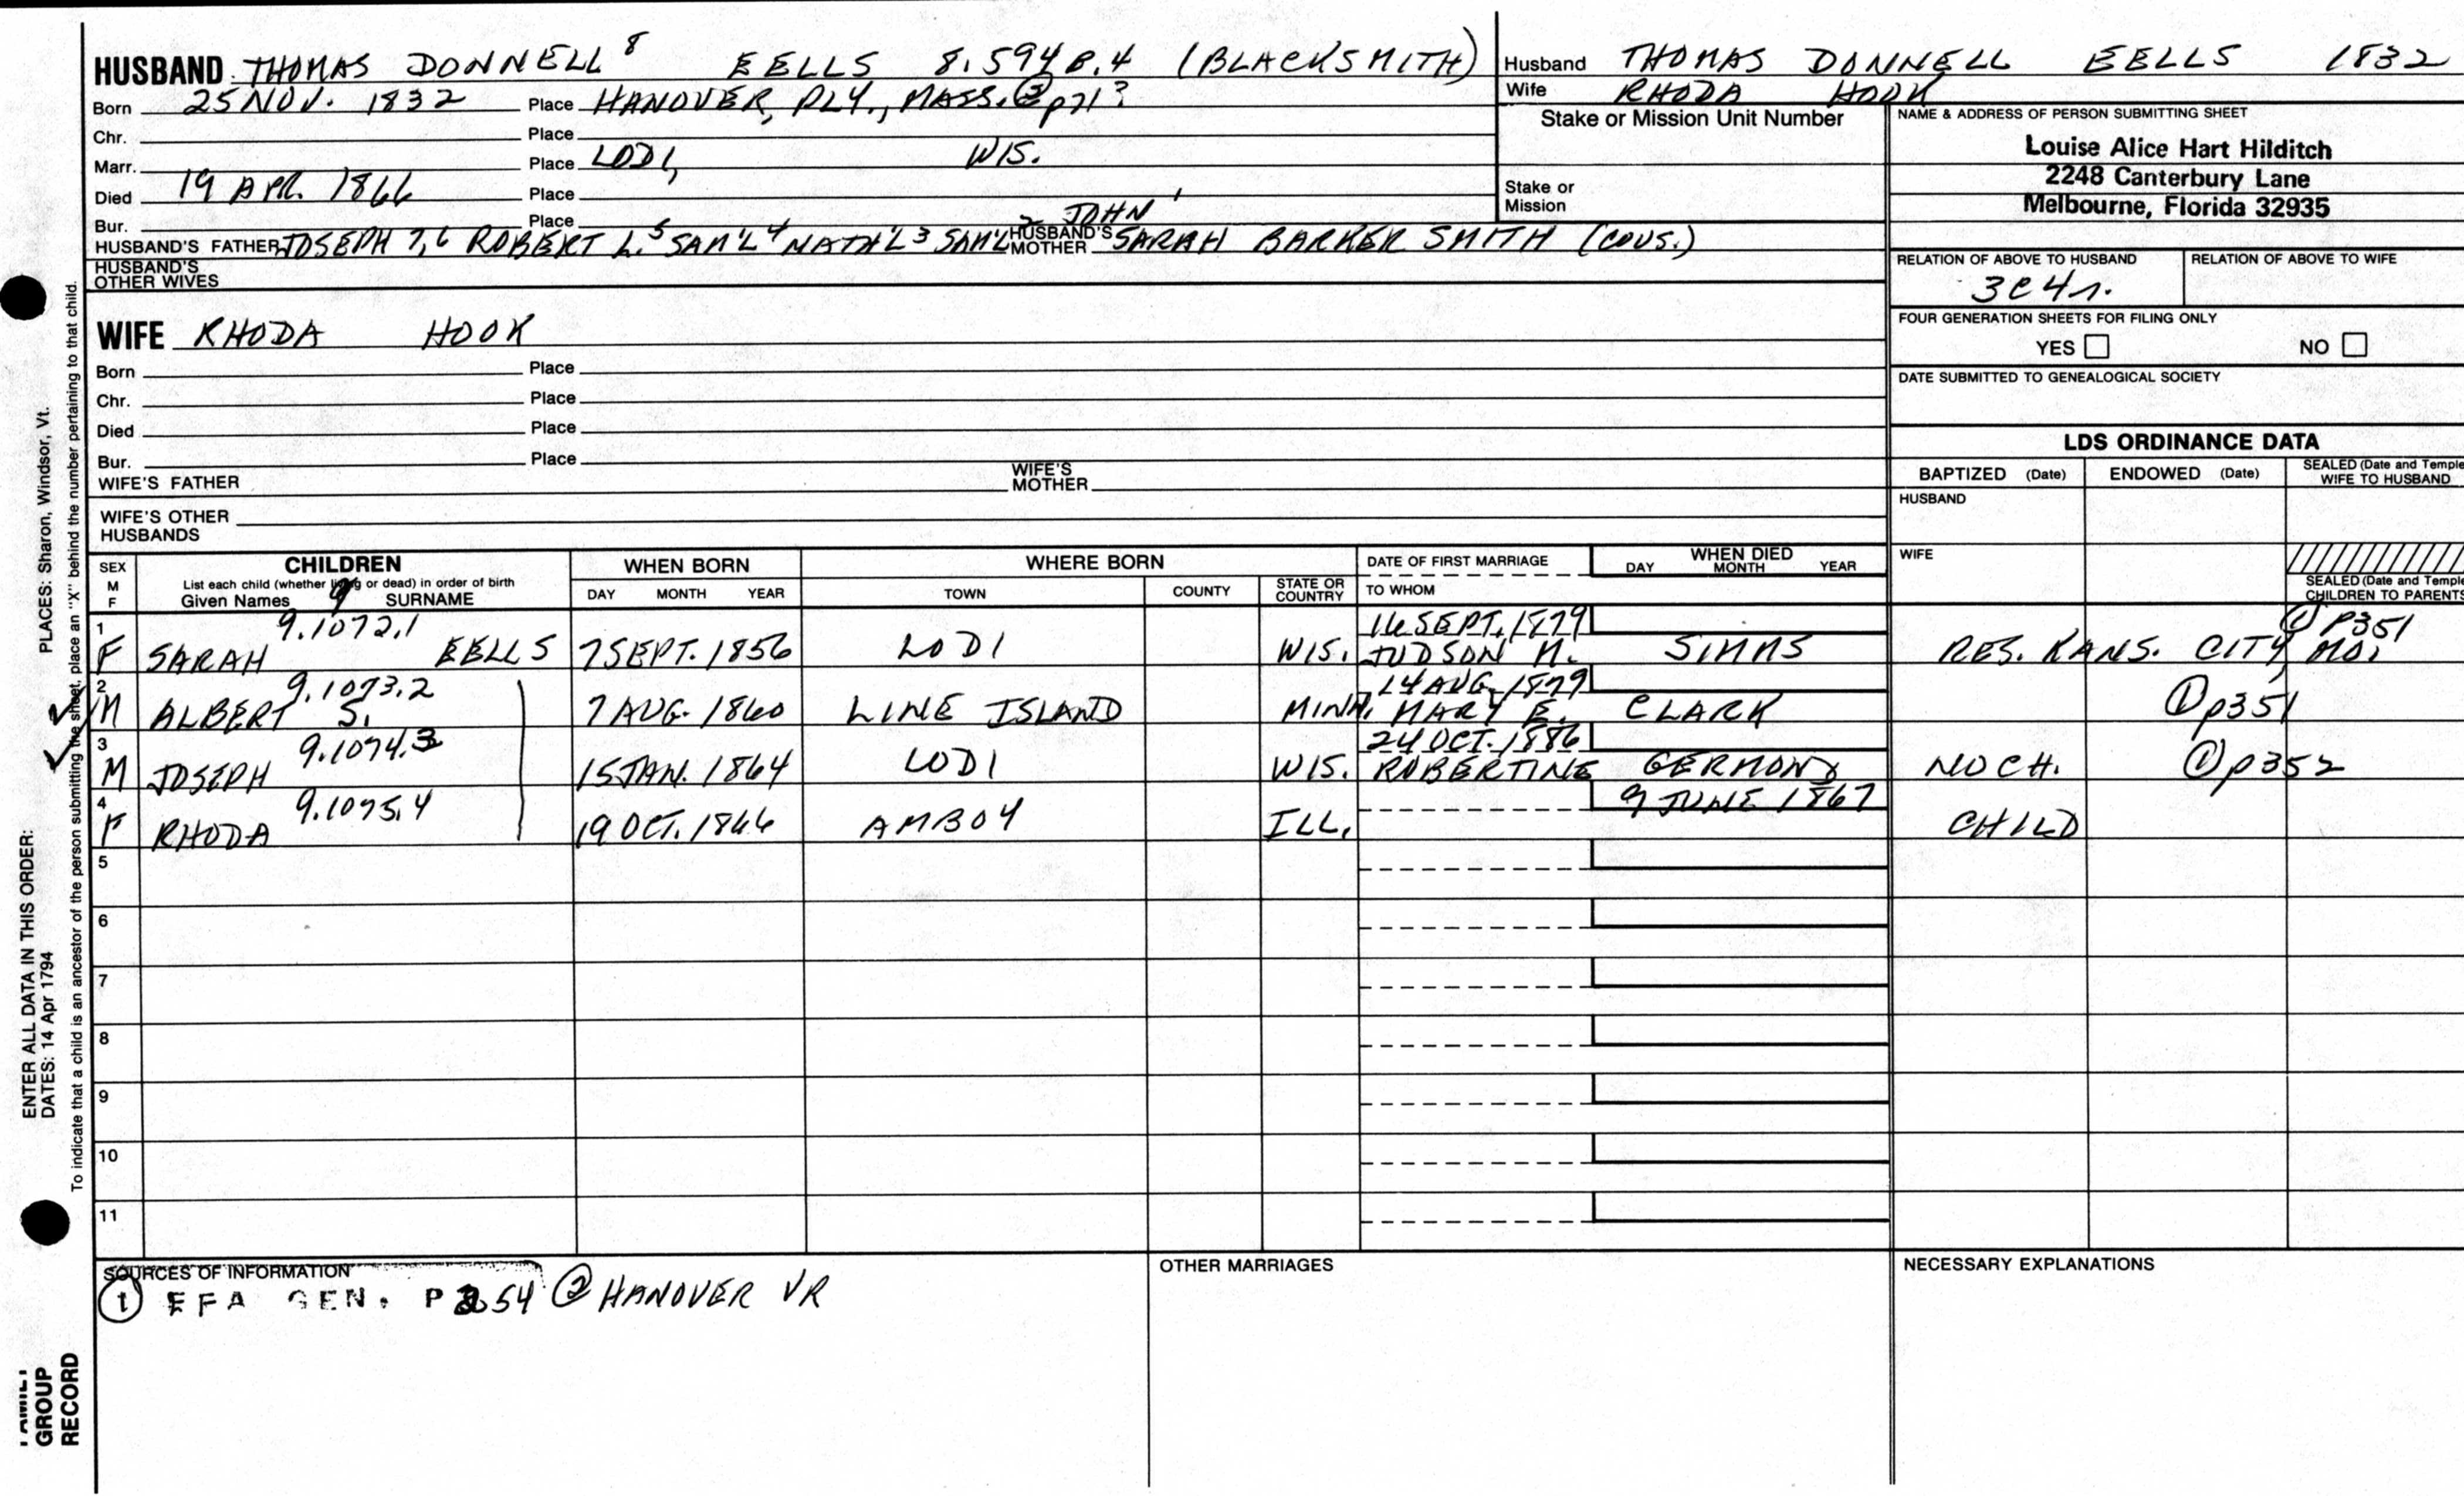 HUSBAND THOMAS DONNELL 8 EELLS 8.594B.4 (BLACKSMITH)
Born 25 NOV. 1832 Place HANOVER, PLY., MASS. ② p71?
Chr. Place
Marr. Place LODI, WIS.
Died 19 APR. 1866 Place
Bur. Place
HUSBAND'S FATHER JOSEPH 7,6 ROBERT L. 5 SAM'L 4 NATH'L 3 SAM'L 2 JOHN 1 HUSBAND'S MOTHER SARAH BARKER SMITH (COUS.)
HUSBAND'S OTHER WIVES
Husband THOMAS DONNELL EELLS 1832
Wife RHODA HOOK
Stake or Mission Unit Number
Stake or Mission
NAME & ADDRESS OF PERSON SUBMITTING SHEET
Louise Alice Hart Hilditch
2248 Canterbury Lane
Melbourne, Florida 32935
RELATION OF ABOVE TO HUSBAND RELATION OF ABOVE TO WIFE
3C4r.
FOUR GENERATION SHEETS FOR FILING ONLY
YES NO
DATE SUBMITTED TO GENEALOGICAL SOCIETY
WIFE RHODA HOOK
Born Place
Chr. Place
Died Place
Bur. Place
WIFE'S FATHER WIFE'S MOTHER
WIFE'S OTHER HUSBANDS
LDS ORDINANCE DATA
BAPTIZED (Date) ENDOWED (Date) SEALED (Date and Temple) WIFE TO HUSBAND
HUSBAND
WIFE
SEALED (Date and Temple) CHILDREN TO PARENTS
SEX M F CHILDREN WHEN BORN WHERE BORN DATE OF FIRST MARRIAGE WHEN DIED
List each child (whether living or dead) in order of birth
Given Names 9 SURNAME DAY MONTH YEAR TOWN COUNTY STATE OR COUNTRY TO WHOM DAY MONTH YEAR
1 9.1072.1 16 SEPT. 1879 ① P351
F SARAH EELLS 7 SEPT. 1856 LODI WIS. JUDSON N. SIMMS RES. KANS. CITY, MO.
2 9.1073.2 14 AUG. 1879
M ALBERT S. 7 AUG. 1860 LINE ISLAND MINN. MARY E. CLARK ① p351
3 9.1074.3 24 OCT. 1886
M JOSEPH 15 JAN. 1864 LODI WIS. ROBERTINE GERMOND NO CH. ① p352
4 9.1075.4 9 JUNE 1867
F RHODA 19 OCT. 1866 AMBOY ILL. CHILD
5
6
7
8
9
10
11
SOURCES OF INFORMATION OTHER MARRIAGES NECESSARY EXPLANATIONS
① EFA GEN. P254 ② HANOVER VR
PLACES: Sharon, Windsor, Vt.
ENTER ALL DATA IN THIS ORDER:
DATES: 14 Apr 1794
To indicate that a child is an ancestor of the person submitting the sheet, place an "X" behind the number pertaining to that child.
FAMILY
GROUP
RECORD